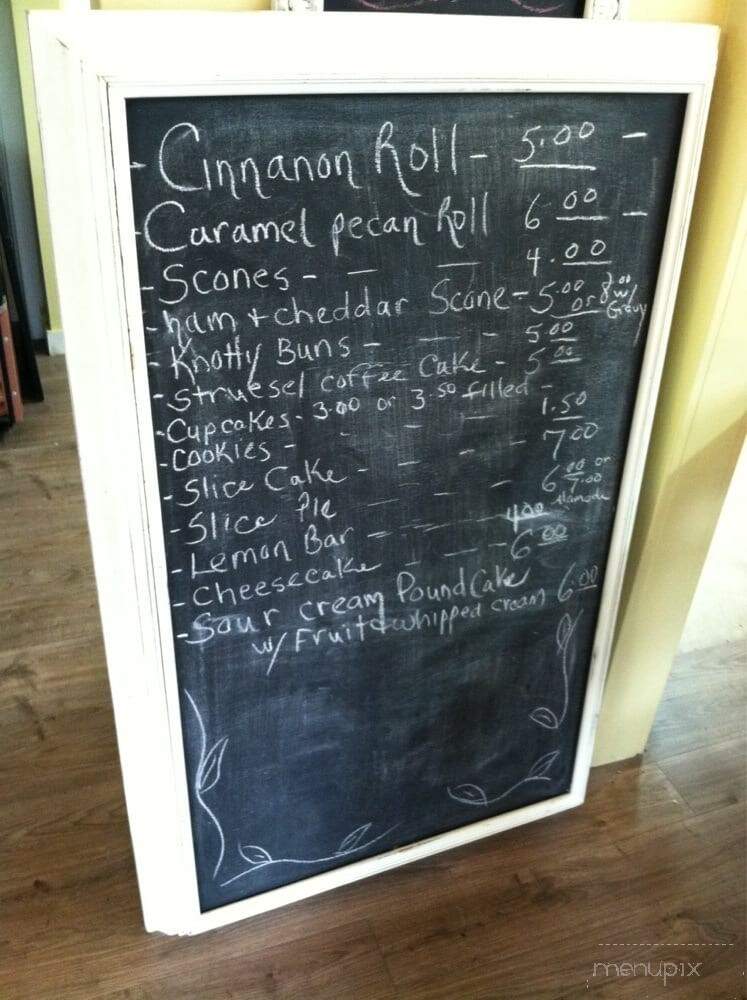 - Cinnanon Roll - 5.00 -
- Caramel pecan Roll 6 00 -
- Scones - — — 4.00
- ham + cheddar Scone - 5.00 or 8.00 w/ Gravy
- Knotty Buns - — - 5 00
- Struesel coffee Cake - 5 00
- Cupcakes - 3.00 or 3.50 filled -
- Cookies - - - - 1.50
- Slice Cake - — - - 7.00
- Slice Pie - - - 6 00 or 7.00 alamode
- Lemon Bar - — 4.00
- Cheesecake - - - 6.00
- Sour cream Pound Cake 6.00
w/ Fruit & whipped cream
menupix